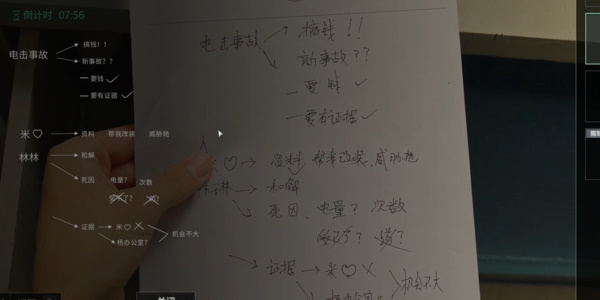 倒计时 07:56
电击事故
搞钱！！
新事故？？
一 要钱 ✓
一 要有证据 ✓
米♡
资料 帮我改装 威胁她
林林
和解
死因 电量？ 次数
证据
米♡ ✗
杨办公室？
机会不大
电击事故
搞钱！！
新事故？？
一 要钱 ✓
一 要有证据 ✓
♡
和解
死因 电量？ 次数
证据 米♡ ✗
机会不大